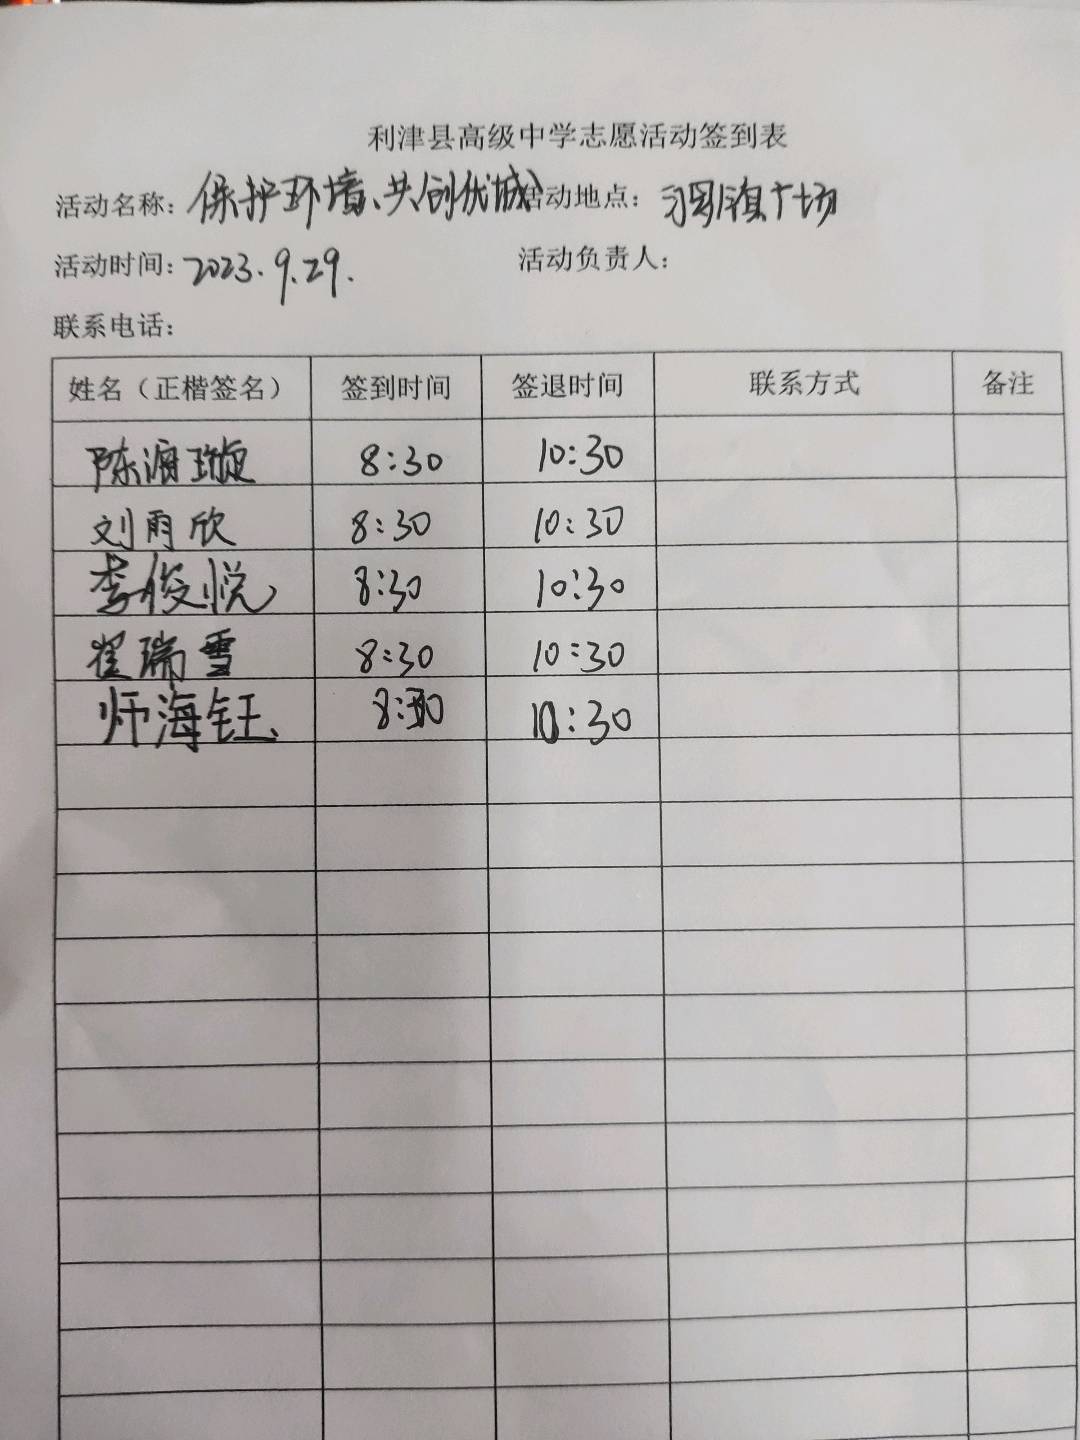 利津县高级中学志愿活动签到表
活动名称：保护环境、共创优城 活动地点：镇广场
活动时间：2023.9.29. 活动负责人：
联系电话：
姓名（正楷签名） 签到时间 签退时间 联系方式 备注
陈海璇 8:30 10:30
刘雨欣 8:30 10:30
李俊悦 8:30 10:30
翟瑞雪 8:30 10:30
师海钰 8:30 10:30